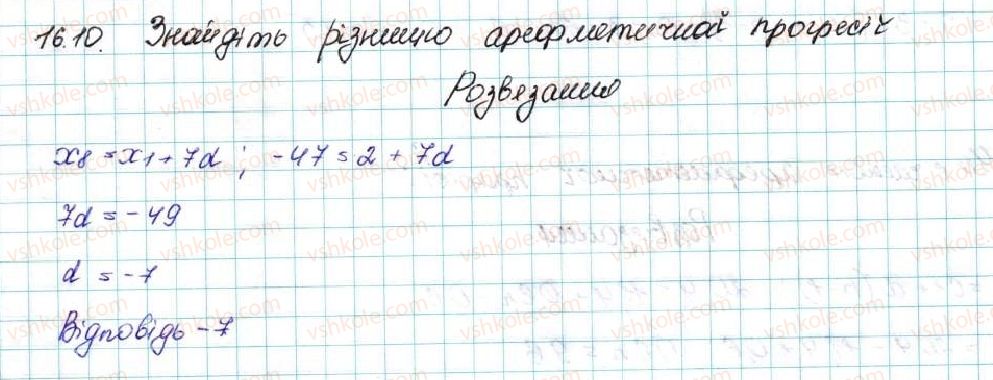 16.10. Знайдіть різницю арефметичной прогресіє
Розвязанню
x8 = x1 + 7d ; -47 = 2 + 7d
7d = -49
d = -7
Відповідь -7